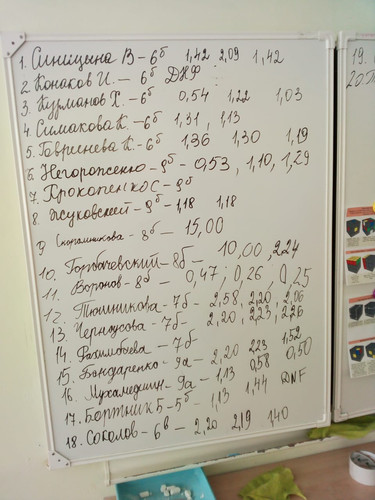 1. Синицина В – 6б 1,42 2,09 1,42
2. Конаков И. – 6б ДНФ
3. Курманов Х. – 6б 0,54 1,22 1,03
4. Симакова К. – 6б 1,31, 1,13
5. Гавриенева К. – 6б 1,36 1,30 1,19
6. Негороженко – 9б – 0,53, 1,10, 1,29
7. Прокопенко С – 9б
8. Жуковский – 9б – 1,18 1,18
9. – 8б – 15,00
10. Горбачевский – 8б – 10,00, 2,24
11. Воронов – 8б – 0,47, 0,26, 0,25
12. Тюшникова – 7б – 2,58, 2,20, 2,06
13. – 7б – 2,20, 223, 226
14. – 7б –
15. Бондаренко – 9а – 2,20 223 1,52
16. – 9а – 1,13 0,58 0,50
17. Бортник Б – 5б – 1,13 1,44 DNF
18. Соколов – 6в – 2,20 2,19 1,40
19.
20.